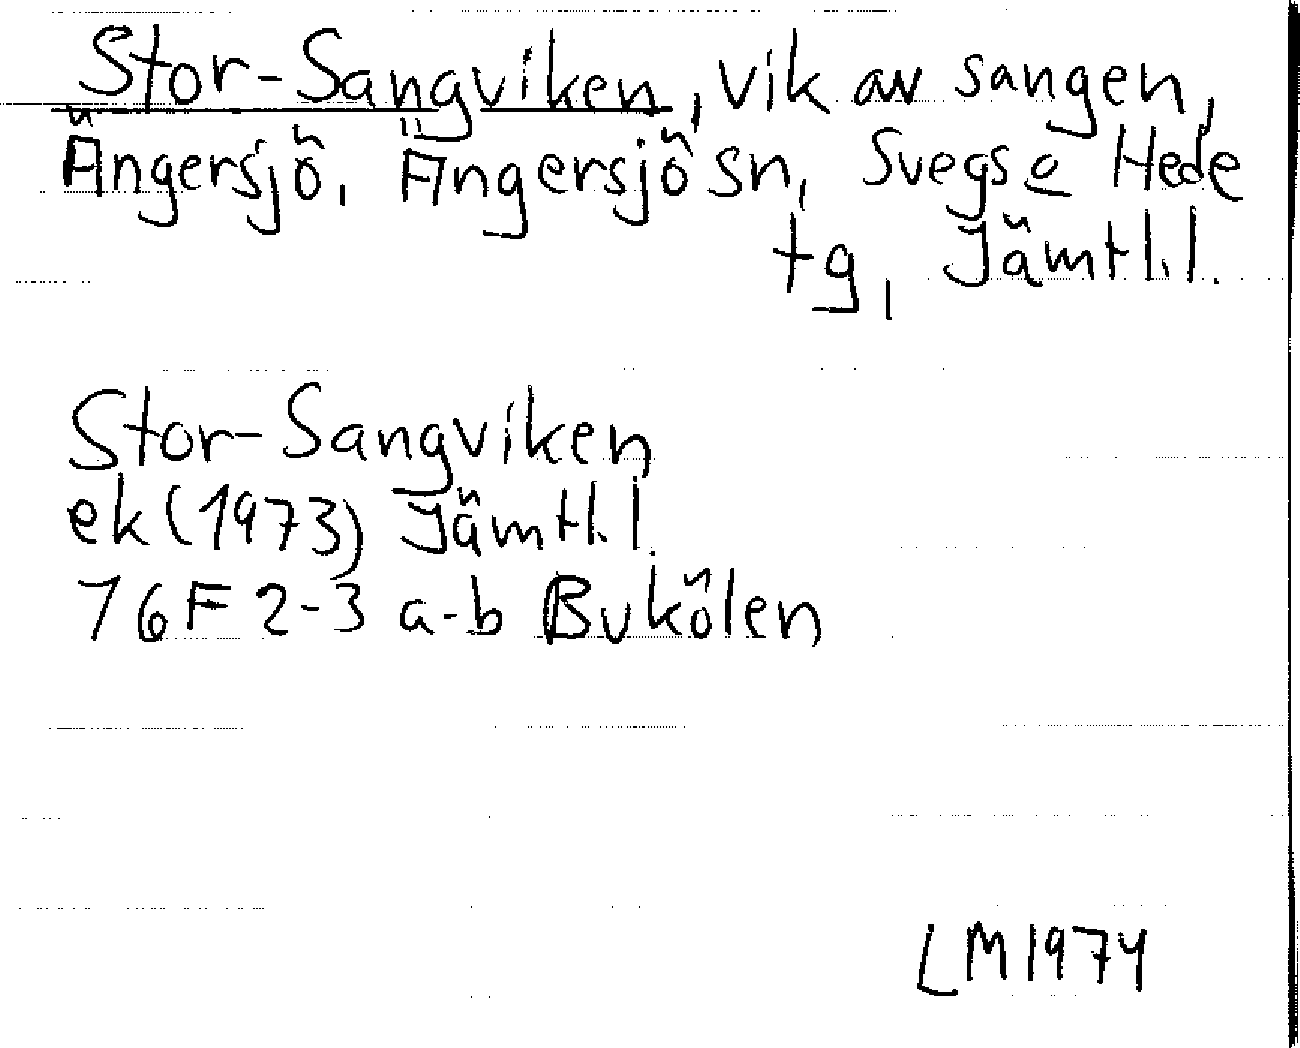 Stor-Sangviken, vik av sangen,
Ängersjö, Ängersjö sn, Svegs o Hede
tg, Jämtl.l.
Stor-Sangviken
ek(1973) Jämtl.l.
16F 2-3 a-b Bukölen
LM1974